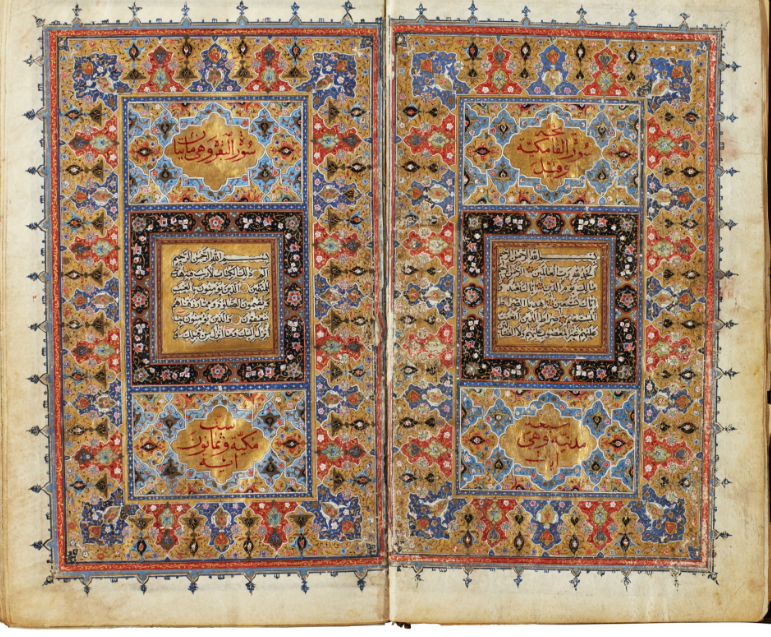 سورة الفاتحة مكية
وقيل
بسم الله الرحمن الرحيم
الحمد لله رب العالمين الرحمن الرحيم
مالك يوم الدين اياك نعبد و
اياك نستعين اهدنا الصراط
المستقيم صراط الذين انعمت
عليهم غير المغضوب عليهم ولا الضالين
سبع
مدنية وهي
آيات
سورة البقرة وهي مايتان
بسم الله الرحمن الرحيم
الم ذلك الكتاب لا ريب فيه هدى
للمتقين الذين يؤمنون بالغيب
ويقيمون الصلوة ومما رزقناهم
ينفقون والذين يؤمنون بما
انزل اليك وما انزل من قبلك
ست
مكية وثمانون
آية